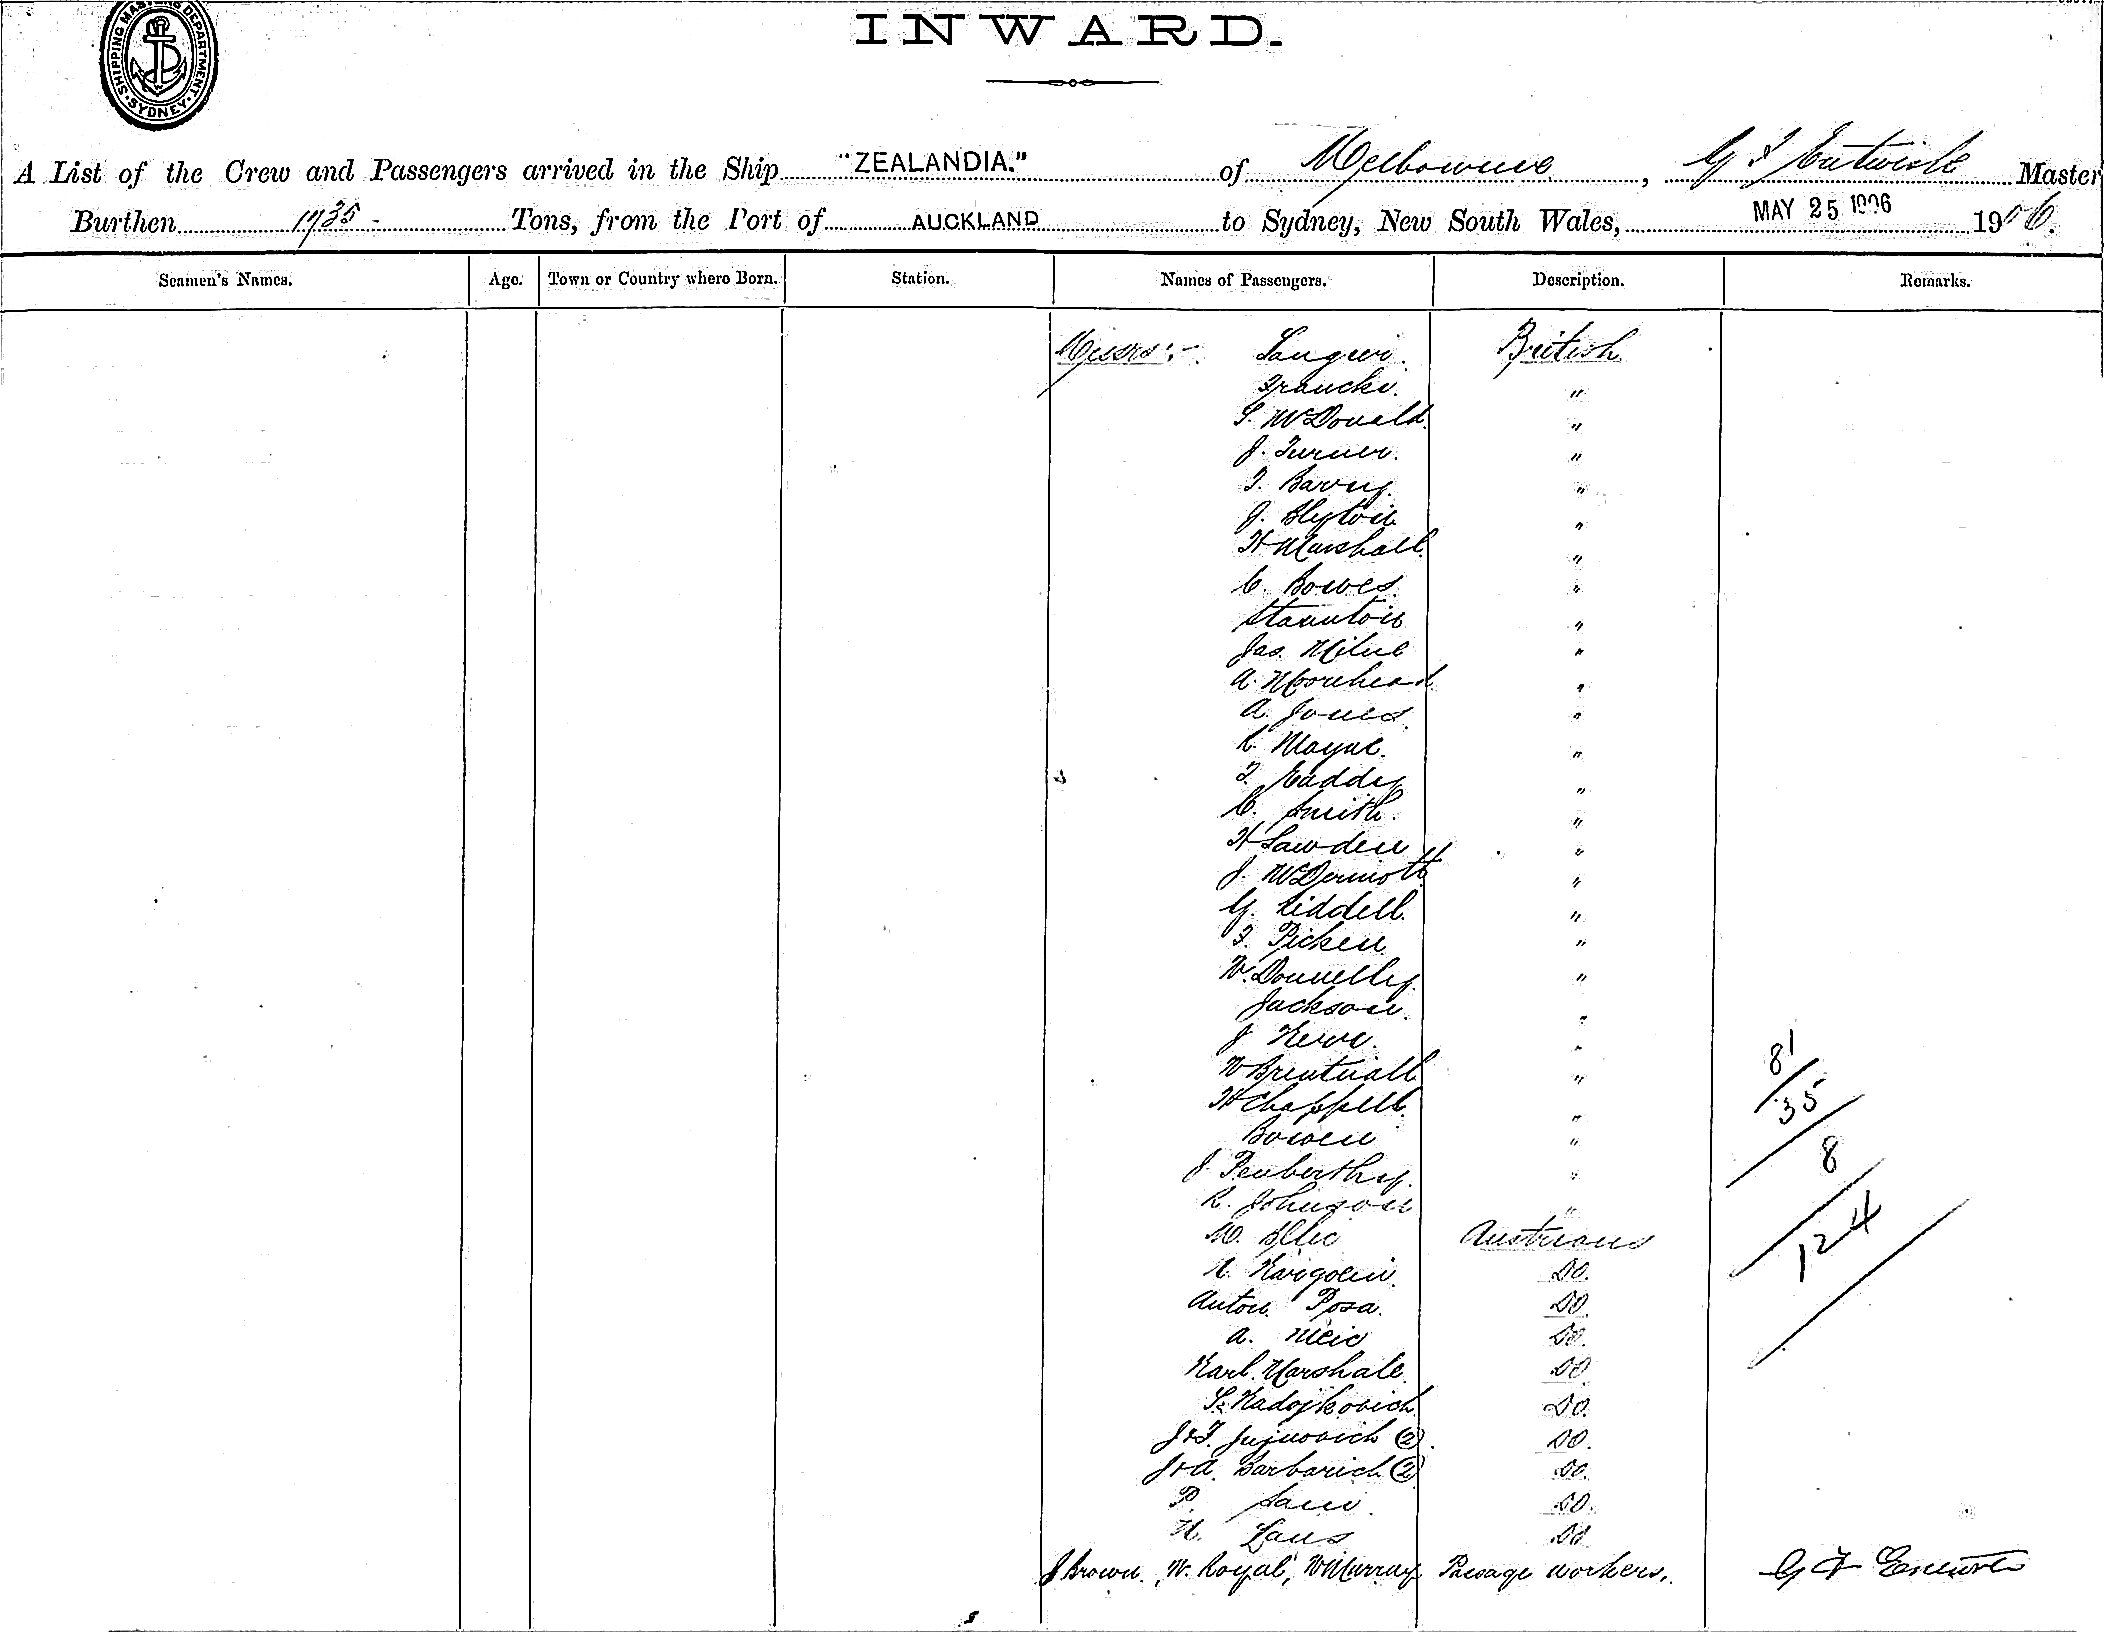 INWARD.
SHIPPING MASTERS DEPARTMENT SYDNEY
A List of the Crew and Passengers arrived in the Ship "ZEALANDIA." of Melbourne, G F Entwisle Master
Burthen 1735 - Tons, from the Port of AUCKLAND to Sydney, New South Wales, MAY 25 1906 1906.
Seamen's Names. Age. Town or Country where Born. Station. Names of Passengers. Description. Remarks.
Messrs:- British
Francke. "
S. McDonald. "
J. Turner. "
"
J. "
H Marshall. "
C. Bowes. "
Staunton "
Jas. Milne "
A. Moorhead "
A. Jones. "
Mayne. "
"
C. Smith. "
H Lawden "
J. McDermott "
G. Liddell. "
F. Picken "
W. Donnelly. "
Jackson. "
J "
W Brentnall "
H Chappell. "
Bowen "
J. Penberthy. "
R. Johnson "
M. Austrians
Do.
Anton Posa. Do.
A. Do.
Karl Marshale. Do
S. Radojkovich Do.
J & F. (2). Do.
J & A. Barbarich (2) Do.
P. Do.
Do
J Brown, W. Royal, W Murray Passage workers.
81
35
8
124
G F